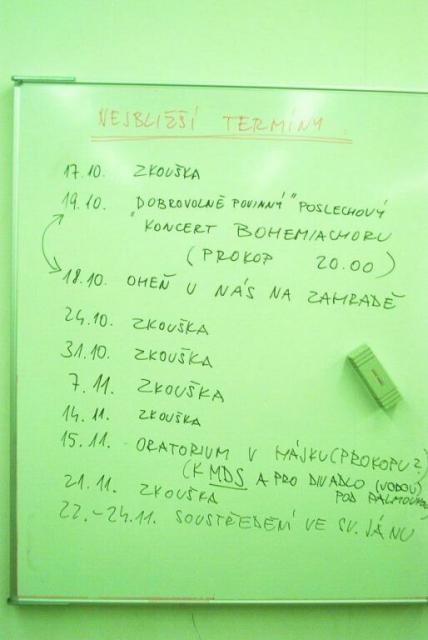 NEJBLIŽŠÍ TERMÍNY
17.10. ZKOUŠKA
19.10. "DOBROVOLNĚ POVINNÝ" POSLECHOVÝ
KONCERT BOHEMIACHORU
(PROKOP 20.00)
18.10. OHEŇ U NÁS NA ZAHRADĚ
24.10. ZKOUŠKA
31.10. ZKOUŠKA
7.11. ZKOUŠKA
14.11. ZKOUŠKA
15.11. ORATORIUM V HÁJKU (PROKOPU?)
(K MDS A PRO DIVADLO (VODOU)
POD PALMOVKOU
21.11. ZKOUŠKA
22.-24.11. SOUSTŘEDĚNÍ VE SV. JÁNU